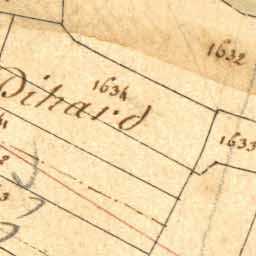 1632
1634
Dihard
1633